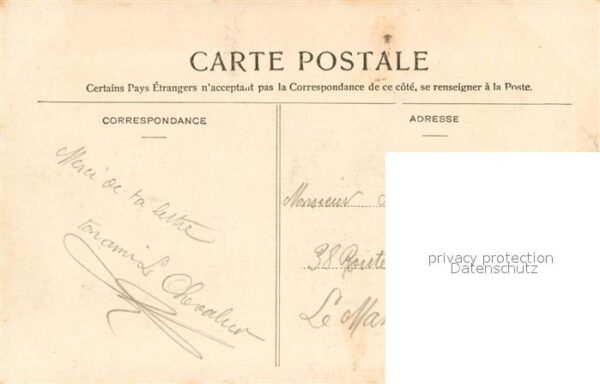 CARTE POSTALE
Certains Pays Étrangers n'acceptant pas la Correspondance de ce côté, se renseigner à la Poste.
CORRESPONDANCE
Merci de ta lettre
ton ami Le Chevalier
ADRESSE
Monsieur
38 Route
Le Man
privacy protection
Datenschutz